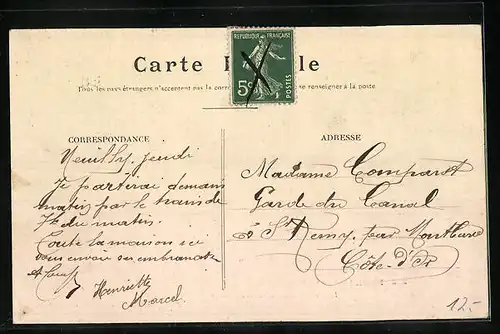 Carte P le
REPUBLIQUE FRANÇAISE
5c
POSTES
Tous les pays étrangers n'acceptent pas la corr se renseigner à la poste
CORRESPONDANCE
Neuilly, jeudi
Je partirai demain
matin par le train de
7h du matin.
Toute la maison se
vous envoie
Henriette
Marcel
ADRESSE
Madame Compard
Garde du Canal
à St Remy, par Montbard
Côte-d'Or
12.-